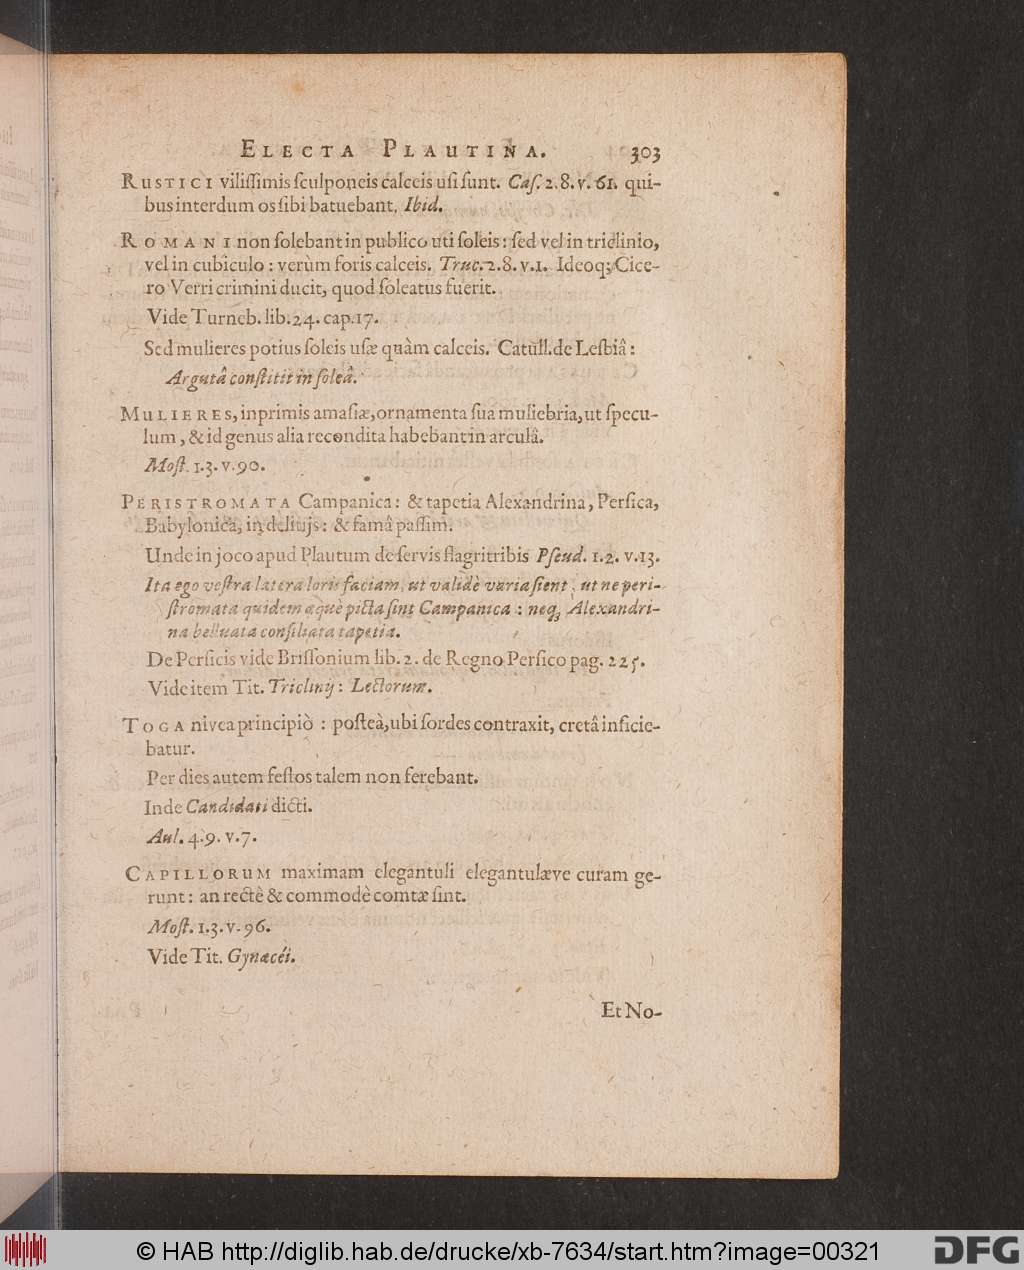 ELECTA PLAUTINA. 303
RUSTICI vilissimis sculponeis calceis usi sunt. Cas. 2.8. v. 61. qui-
bus interdum os sibi batuebant. Ibid.
ROMANI non solebant in publico uti soleis: sed vel in triclinio,
vel in cubiculo: verùm foris calceis. Truc. 2.8. v.1. Ideoq; Cice-
ro Verri crimini ducit, quod soleatus fuerit.
Vide Turneb. lib. 24. cap. 17.
Sed mulieres potius soleis usæ quàm calceis. Catull. de Lesbiâ:
Argutâ constitit in soleâ.
MULIERES, inprimis amasiæ, ornamenta sua muliebria, ut specu-
lum, & id genus alia recondita habebant in arculâ.
Most. 1.3. v. 90.
PERISTROMATA Campanica: & tapetia Alexandrina, Persica,
Babylonica, in delitijs: & famâ passim.
Unde in joco apud Plautum de servis flagritribis Pseud. 1.2. v.13.
Ita ego vestra latera loris faciam, ut validè varia sient, ut ne peri-
stromata quidem æquè picta sint Campanica: neq; Alexandri-
na belluata consiliata tapetia.
De Persicis vide Brissonium lib. 2. de Regno Persico pag. 225.
Vide item Tit. Triclinij: Lectorum.
TOGA nivea principiò: posteà, ubi sordes contraxit, cretâ inficie-
batur.
Per dies autem festos talem non ferebant.
Inde Candidati dicti.
Aul. 4.9. v. 7.
CAPILLORUM maximam elegantuli elegantulæve curam ge-
runt: an rectè & commodè comtæ sint.
Most. 1.3. v. 96.
Vide Tit. Gynæcéi.
Et No-
© HAB http://diglib.hab.de/drucke/xb-7634/start.htm?image=00321
DFG